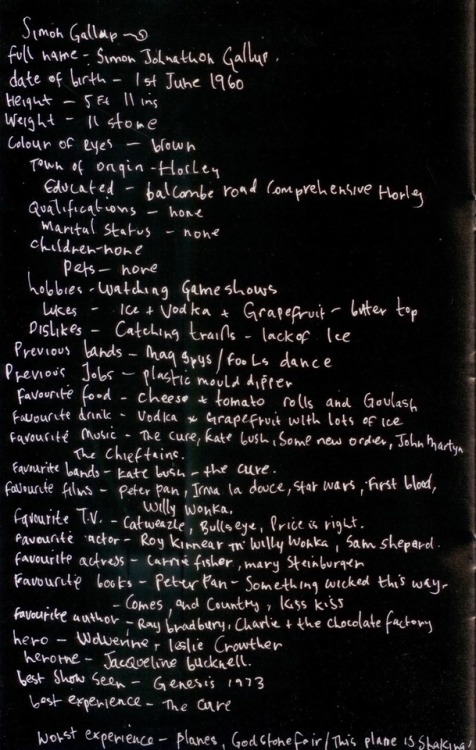 Simon Gallup
full name - Simon Johnathon Gallup.
date of birth - 1st June 1960
Height - 5 Ft 11 ins
Weight - 11 stone
Colour of eyes - brown
Town of origin - Horley
Educated - balcombe road Comprehensive Horley
Qualifications - none
Marital status - none
Children - none
Pets - none
hobbies - Watching Game shows
Likes - Ice + Vodka + Grapefruit - butter top
Dislikes - Catching trains - lack of Ice
Previous bands - mag spys / fooLs dance
Previous Jobs - plastic mould dipper
favourite food - cheese + tomato rolls and Goulash
favourite drink - Vodka + Grapefruit with lots of ice
favourite Music - The cure, Kate bush, Some new order, John Martyn
The Chieftains.
favourite bands - Kate bush - the cure.
favourite films - Peter pan, Irma la douce, star wars, first blood,
Willy Wonka.
favourite T.V. - Catweazle, Bullseye, Price is right.
favourite actor - Roy Kinnear in Willy Wonka, Sam Sheperd.
favourite actress - Carrie fisher, mary Steinburger
favourite books - Peter Pan - Something wicked this way -
- Comes, and Country, Kiss Kiss
favourite author - Ray bradbury, Charlie + the chocolate factory
hero - Wolverine, leslie Crowther
heroine - Jacqueline bucknell.
best Show Seen - Genesis 1973
best experience - The cure
Worst experience - planes, Godstone fair / This plane is Shaking